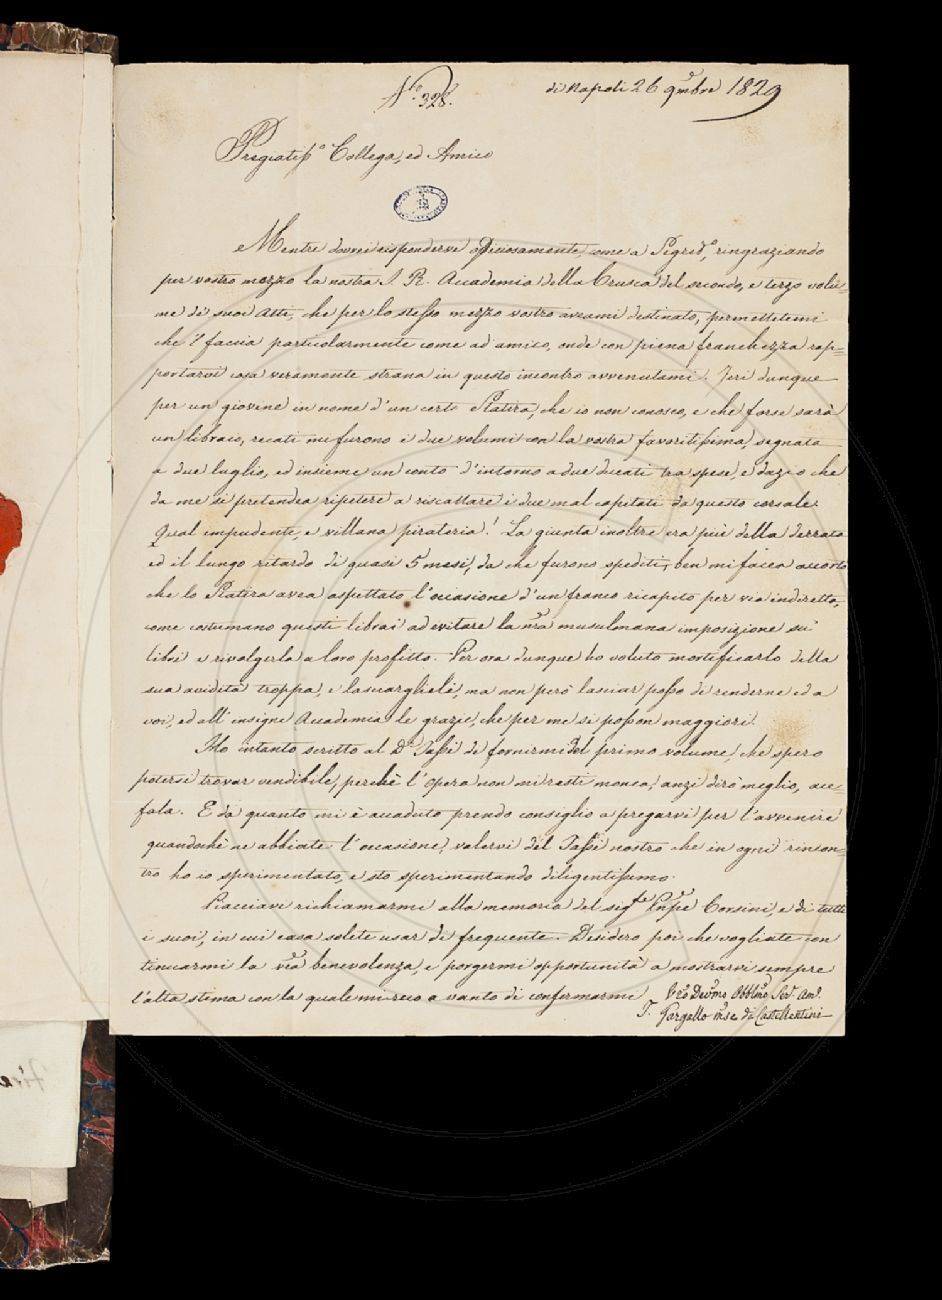 N.º 328.
di Napoli 26 9mbre 1829
Pregiatiss.º Collega, ed Amico
Mentre dovrei rispondervi officiosamente, come a Segret.º, ringraziando
per vostro mezzo la nostra I. R. Accademia della Crusca del secondo, e terzo volu=
me de' suoi Atti, che per lo stesso mezzo vostro aveami destinato, permettetemi
che 'l faccia particolarmente come ad amico, onde con piena franchezza rap=
portarvi cosa veramente strana in questo incontro avvenutami. Jeri dunque
per un giovine in nome d'un certo Platina, che io non conosco, e che forse sarà
un libraio, recati mi furono i due volumi con la vostra favoritissima, segnata
a due luglio, ed insieme un conto d'intorno a due ducati tra spese, e dazio che
da me si pretendea ripetere a riscattare i due mal capitati da questo corsale.
Qual impudente, e villana pirateria! La giunta inoltre era più della derrata
ed il lungo ritardo di quasi 5 mesi, da che furono spediti, ben mi facea accorto
che lo Platina avea aspettato l'occasione d'un franco ricapito per via indiretta,
come costumano questi librai ad evitare la nra musulmana imposizione su'
libri e rivolgerla a loro profitto. Per ora dunque ho voluto mortificarlo della
sua avidità troppa, e lasciarglieli, ma non però lasciar posso di renderne ed a
voi, ed all'insigne Accademia le grazie, che per me si posson maggiori.
Ho intanto scritto al D.r Tassi di fornirmi del primo volume, che spero
potersi trovar vendibile, perchè l'opera non mi resti monca, anzi dirò meglio, ace
fala. E da quanto mi è accaduto prendo consiglio a pregarvi per l'avvenire
quandochè ne abbiate l'occasione, valervi del Tassi nostro che in ogni rincon=
tro ho io sperimentato, e sto sperimentando diligentissimo.
Piacciavi richiamarmi alla memoria del sig.r Pnpe Corsini, e di tutti
i suoi, in cui casa solete usar di frequente. Desidero poi che vogliate con
tinuarmi la vra benevolenza, e porgermi opportunità a mostrarvi sempre
l'alta stima con la quale mi reco a vanto di confermarmi Vro Devmo Obblmo Ser. Am.
T. Gargallo mse di Castellentini